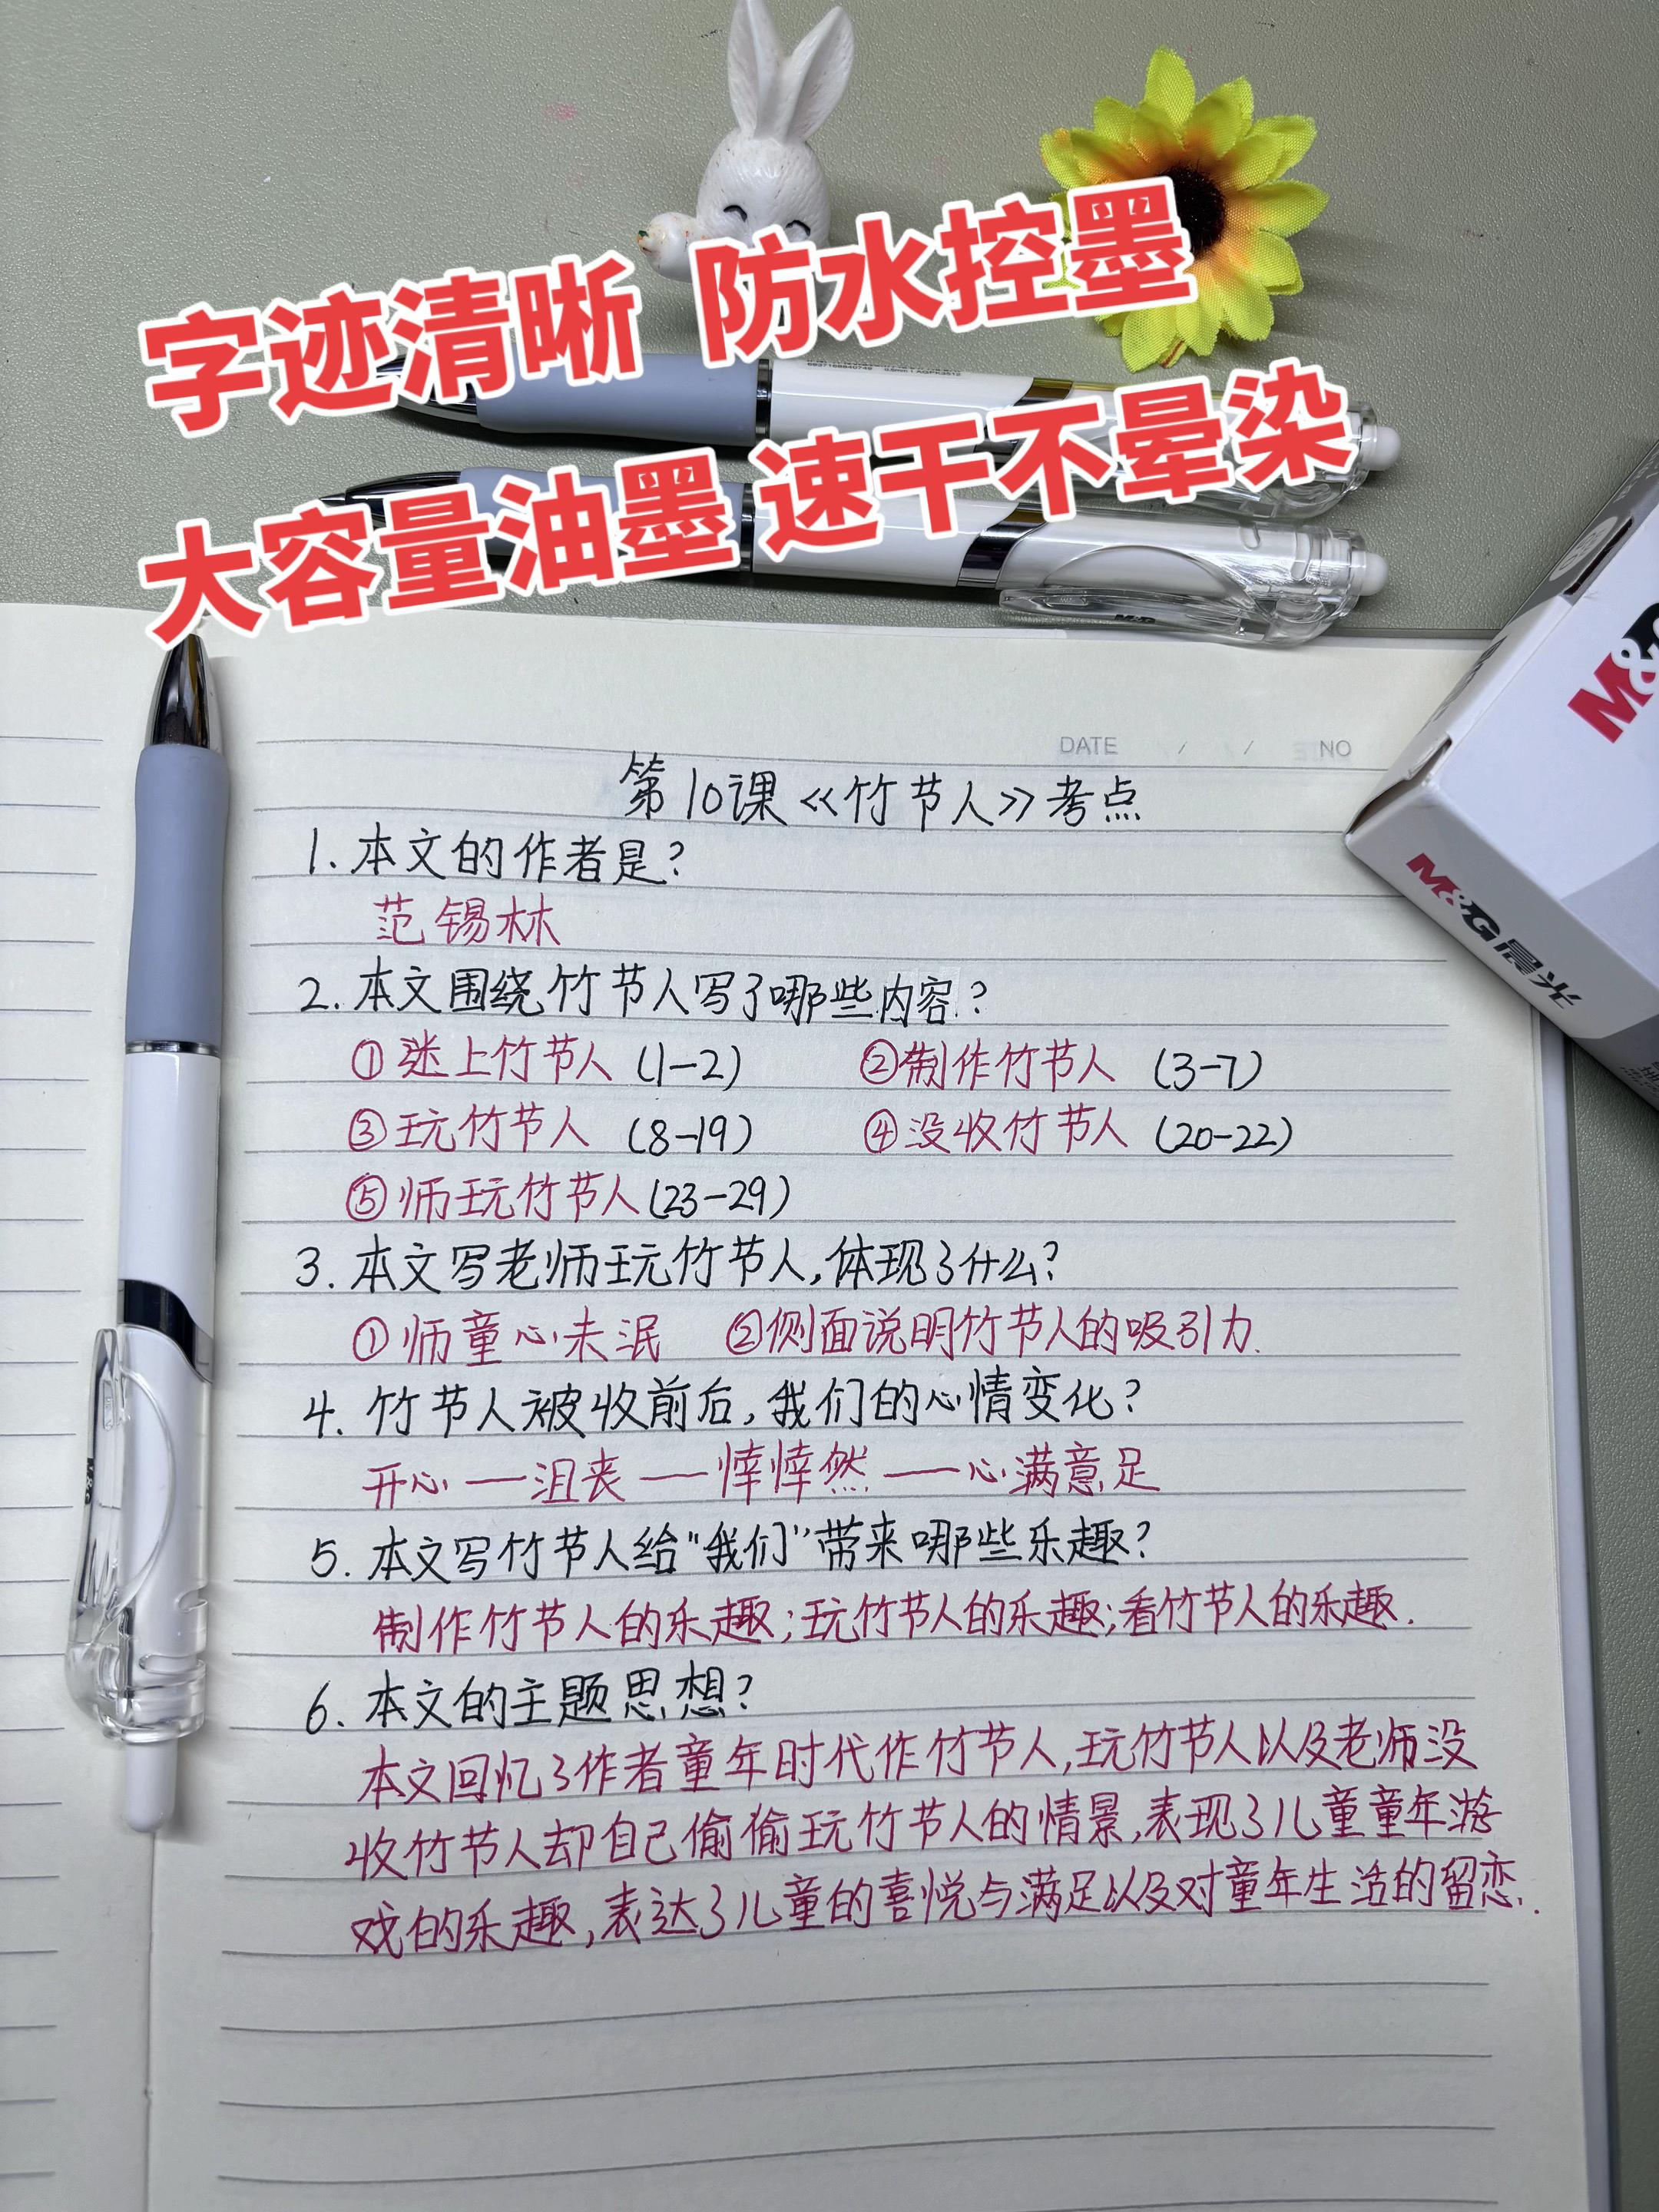 字迹清晰 防水控墨
大容量油墨 速干不晕染
DATE / / NO
第10课《竹节人》考点
1. 本文的作者是?
范锡林
2. 本文围绕竹节人写了哪些内容?
①迷上竹节人 (1-2) ②制作竹节人 (3-7)
③玩竹节人 (8-19) ④没收竹节人 (20-22)
⑤师玩竹节人(23-29)
3. 本文写老师玩竹节人,体现了什么?
①师童心未泯 ②侧面说明竹节人的吸引力.
4. 竹节人被收前后,我们的心情变化?
开心—沮丧—悻悻然—心满意足
5. 本文写竹节人给“我们”带来哪些乐趣?
制作竹节人的乐趣;玩竹节人的乐趣;看竹节人的乐趣.
6. 本文的主题思想?
本文回忆了作者童年时代作竹节人,玩竹节人以及老师没
收竹节人却自己偷偷玩竹节人的情景,表现了儿童童年游
戏的乐趣,表达了儿童的喜悦与满足以及对童年生活的留恋.
M&G
M&G晨光
M&G
M&G